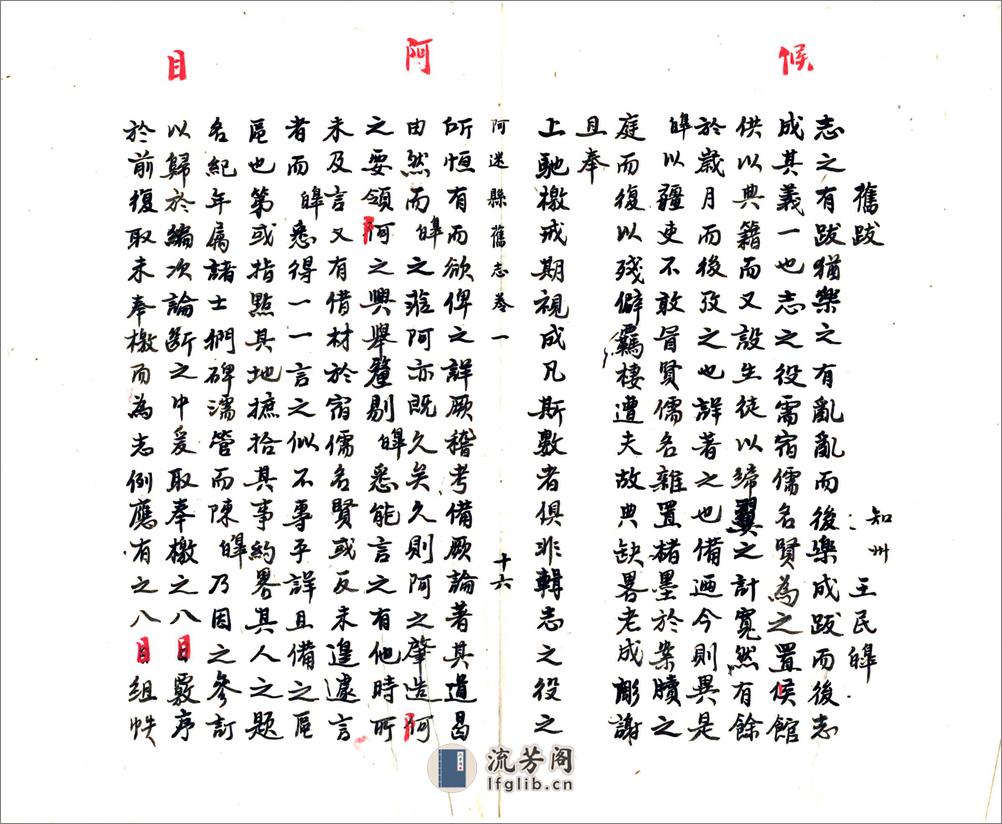 候
阿
目
舊跋
知州 王民皥
志之有跋猶樂之有亂亂而後樂成跋而後志
成其義一也志之役需宿儒名賢為之置候館
供以典籍而又設生徒以締翼之計寬然有餘
於歲月而後攷之也詳著之也備迺今則異是
皥以疆吏不敢冒賢儒名雜置楮墨於案牘之
庭而復以殘僻羈棲遭夫故典缺畧老成彫謝
且奉
上馳檄戒期視成凡斯數者俱非輯志之役之
阿迷縣舊志卷一 十六
所恒有而欲俾之詳厥稽考備厥論著其道曷
由然而皥之蒞阿亦既久矣久則阿之肇造阿
之要領阿之興舉釐剔皥悉能言之有他時所
未及言又有借材於宿儒名賢或反未遑遽言
者而皥悉得一一言之似不專乎詳且備之區
區也第或指點其地摭拾其事約畧其人之題
名紀年屬諸士捫碑濡管而陳皥乃因之參訂
以歸於編次論斷之中爰取奉檄之八目敷序
於前復取未奉檄而為志例應有之八目組帙
流芳阁
lfglib.cn